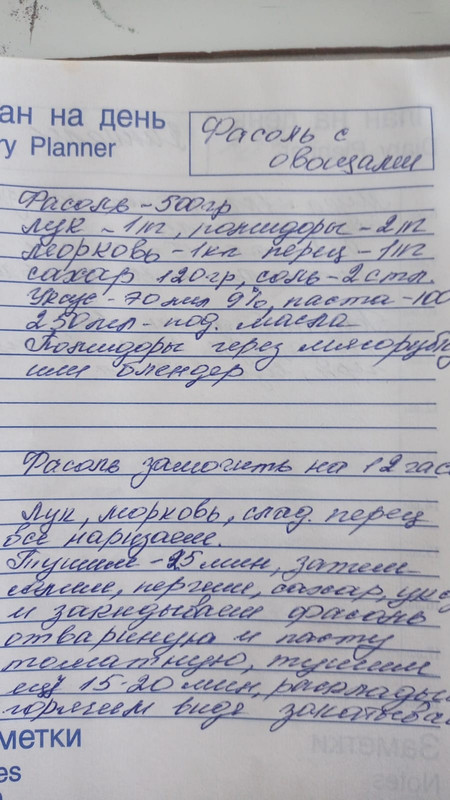 ан на день
ry Planner
Фасоль с
овощами
Фасоль - 500гр
Лук - 1 кг, помидоры - 2 кг
Морковь - 1кг перец - 1 кг
сахар 120гр, соль - 2 стл.
Уксус - 70 мил 9%, паста - 100
250 мл - под. масла
Помидоры через мясорубк
или блендер
Фасоль замочить на 12 час
Лук, морковь, слад. перец
все нарезаем.
Тушим - 25 мин, затем
перчим, сахар, укс
и закидываем фасоль
отвариную и пасту
томатную, тушим
ещу 15-20 мин, раскладыв
горячем виде закатыва
метки
es